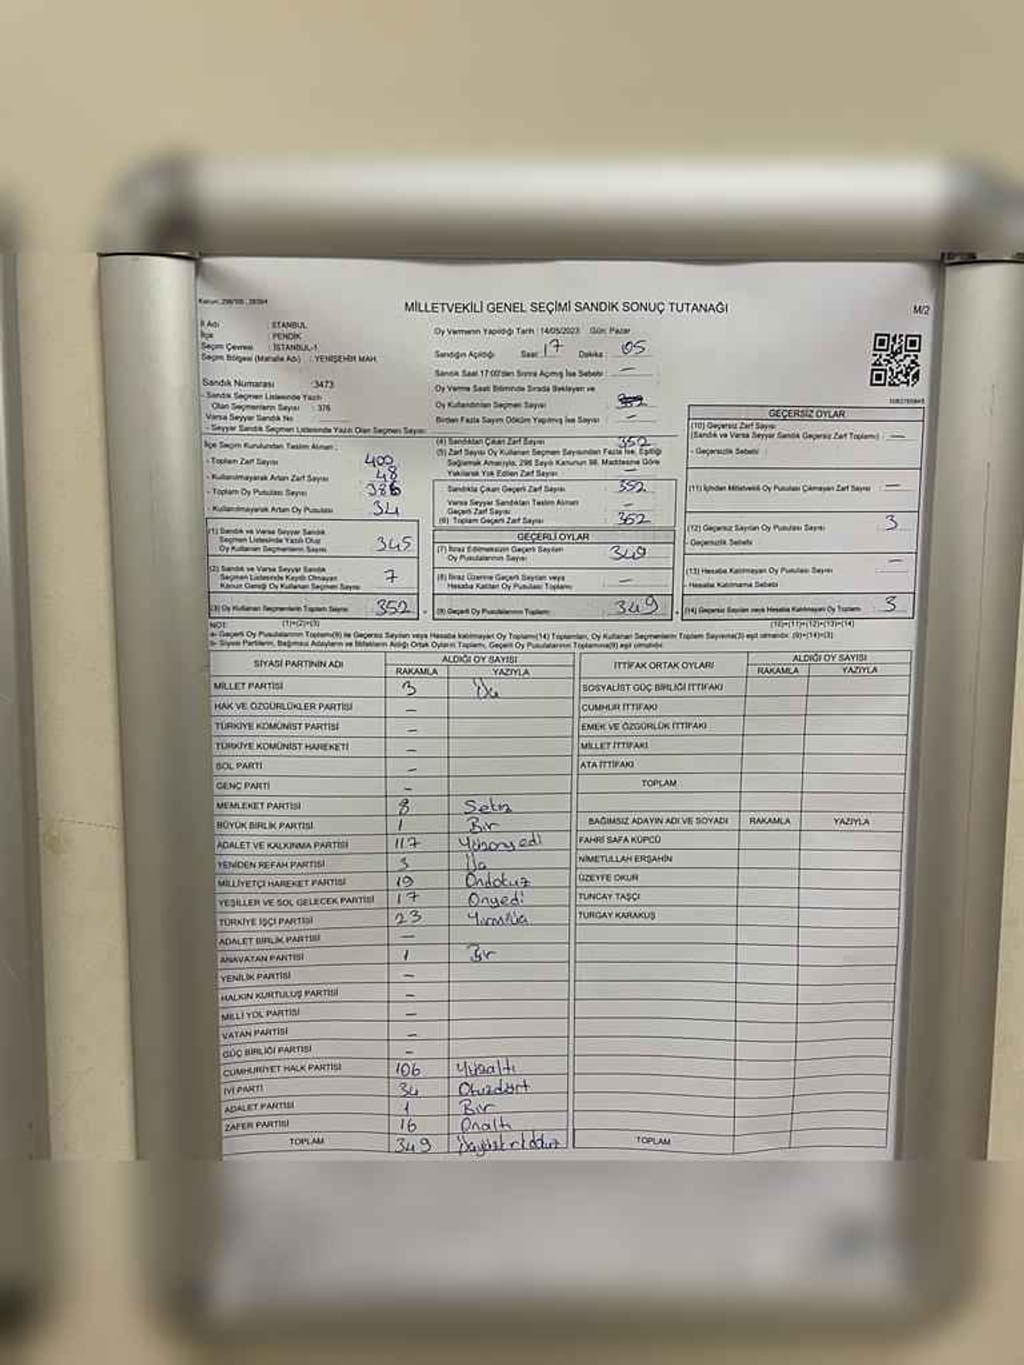 MİLLETVEKİLİ GENEL SEÇİMİ SANDIK SONUÇ TUTANAĞI
M/2
İl Adı : İSTANBUL
İlçe : PENDİK
Seçim Çevresi : İSTANBUL-1
Seçim Bölgesi (Mahalle Adı) : YENİŞEHİR MAH.
Sandık Numarası : 3473
- Sandık Seçmen Listesinde Yazılı
Olan Seçmenlerin Sayısı : 376
Varsa Seyyar Sandık No
- Seyyar Sandık Seçmen Listesinde Yazılı Olan Seçmen Sayısı:
Oy Vermenin Yapıldığı Tarih : 14/05/2023 Gün: Pazar
Sandığın Açıldığı Saat : 17 Dakika : 05
Sandık Saat 17:00'den Sonra Açılmış İse Sebebi : —
Oy Verme Saati Bitiminde Sırada Bekleyen ve
Oy Kullandırılan Seçmen Sayısı :
Birden Fazla Sayım Döküm Yapılmış İse Sayısı : —
İlçe Seçim Kurulundan Teslim Alınan ;
- Toplam Zarf Sayısı : 400
- Kullanılmayarak Artan Zarf Sayısı : 48
- Toplam Oy Pusulası Sayısı : 386
- Kullanılmayarak Artan Oy Pusulası : 34
(1) Sandık ve Varsa Seyyar Sandık
Seçmen Listesinde Yazılı Olup
Oy Kullanan Seçmenlerin Sayısı : 345
(2) Sandık ve Varsa Seyyar Sandık
Seçmen Listesinde Kayıtlı Olmayan
Kanun Gereği Oy Kullanan Seçmen Sayısı : 7
(3) Oy Kullanan Seçmenlerin Toplam Sayısı : 352
(4) Sandıktan Çıkan Zarf Sayısı : 352
(5) Zarf Sayısı Oy Kullanan Seçmen Sayısından Fazla İse, Eşitliği
Sağlamak Amacıyla, 298 Sayılı Kanunun 98. Maddesine Göre
Yakılarak Yok Edilen Zarf Sayısı : —
Sandıkta Çıkan Geçerli Zarf Sayısı : 352
Varsa Seyyar Sandıktan Teslim Alınan
Geçerli Zarf Sayısı : —
(6) Toplam Geçerli Zarf Sayısı : 352
GEÇERLİ OYLAR
(7) İtiraz Edilmeksizin Geçerli Sayılan
Oy Pusulalarının Sayısı : 349
(8) İtiraz Üzerine Geçerli Sayılan veya
Hesaba Katılan Oy Pusulası Toplamı : —
(9) Geçerli Oy Pusulalarının Toplamı : 349
GEÇERSİZ OYLAR
(10) Geçersiz Zarf Sayısı
(Sandık ve Varsa Seyyar Sandık Geçersiz Zarf Toplamı) : —
- Geçersizlik Sebebi :
(11) İçinden Milletvekili Oy Pusulası Çıkmayan Zarf Sayısı : —
(12) Geçersiz Sayılan Oy Pusulası Sayısı : 3
- Geçersizlik Sebebi
(13) Hesaba Katılmayan Oy Pusulası Sayısı : —
- Hesaba Katılmama Sebebi
(14) Geçersiz Sayılan veya Hesaba Katılmayan Oy Toplamı : 3
NOT: (1)+(2)=(3) (10)+(11)+(12)+(13)=(14)
a- Geçerli Oy Pusulalarının Toplamı(9) ile Geçersiz Sayılan veya Hesaba katılmayan Oy Toplamı(14) Toplamları, Oy Kullanan Seçmenlerin Toplam Sayısına(3) eşit olmalıdır. (9)+(14)=(3)
b- Siyasi Partilerin, Bağımsız Adayların ve İttifakların Aldığı Ortak Oyların Toplamı, Geçerli Oy Pusulalarının Toplamına(9) eşit olmalıdır.
SİYASİ PARTİNİN ADI ALDIĞI OY SAYISI
RAKAMLA YAZIYLA
MİLLET PARTİSİ 3 Üç
HAK VE ÖZGÜRLÜKLER PARTİSİ —
TÜRKİYE KOMÜNİST PARTİSİ —
TÜRKİYE KOMÜNİST HAREKETİ —
SOL PARTİ —
GENÇ PARTİ —
MEMLEKET PARTİSİ 8 Sekiz
BÜYÜK BİRLİK PARTİSİ 1 Bir
ADALET VE KALKINMA PARTİSİ 117 Yüzonyedi
YENİDEN REFAH PARTİSİ 3 Üç
MİLLİYETÇİ HAREKET PARTİSİ 19 Ondokuz
YEŞİLLER VE SOL GELECEK PARTİSİ 17 Onyedi
TÜRKİYE İŞÇİ PARTİSİ 23 Yirmiüç
ADALET BİRLİK PARTİSİ —
ANAVATAN PARTİSİ 1 Bir
YENİLİK PARTİSİ —
HALKIN KURTULUŞ PARTİSİ —
MİLLİ YOL PARTİSİ —
VATAN PARTİSİ —
GÜÇ BİRLİĞİ PARTİSİ —
CUMHURİYET HALK PARTİSİ 106 Yüzaltı
İYİ PARTİ 34 Otuzdört
ADALET PARTİSİ 1 Bir
ZAFER PARTİSİ 16 Onaltı
TOPLAM 349 Üçyüzkırkdokuz
İTTİFAK ORTAK OYLARI ALDIĞI OY SAYISI
RAKAMLA YAZIYLA
SOSYALİST GÜÇ BİRLİĞİ İTTİFAKI
CUMHUR İTTİFAKI
EMEK VE ÖZGÜRLÜK İTTİFAKI
MİLLET İTTİFAKI
ATA İTTİFAKI
TOPLAM
BAĞIMSIZ ADAYIN ADI VE SOYADI RAKAMLA YAZIYLA
FAHRİ SAFA KÜPCÜ
NİMETULLAH ERŞAHİN
ÜZEYFE OKUR
TUNCAY TAŞÇI
TURGAY KARAKUŞ
TOPLAM